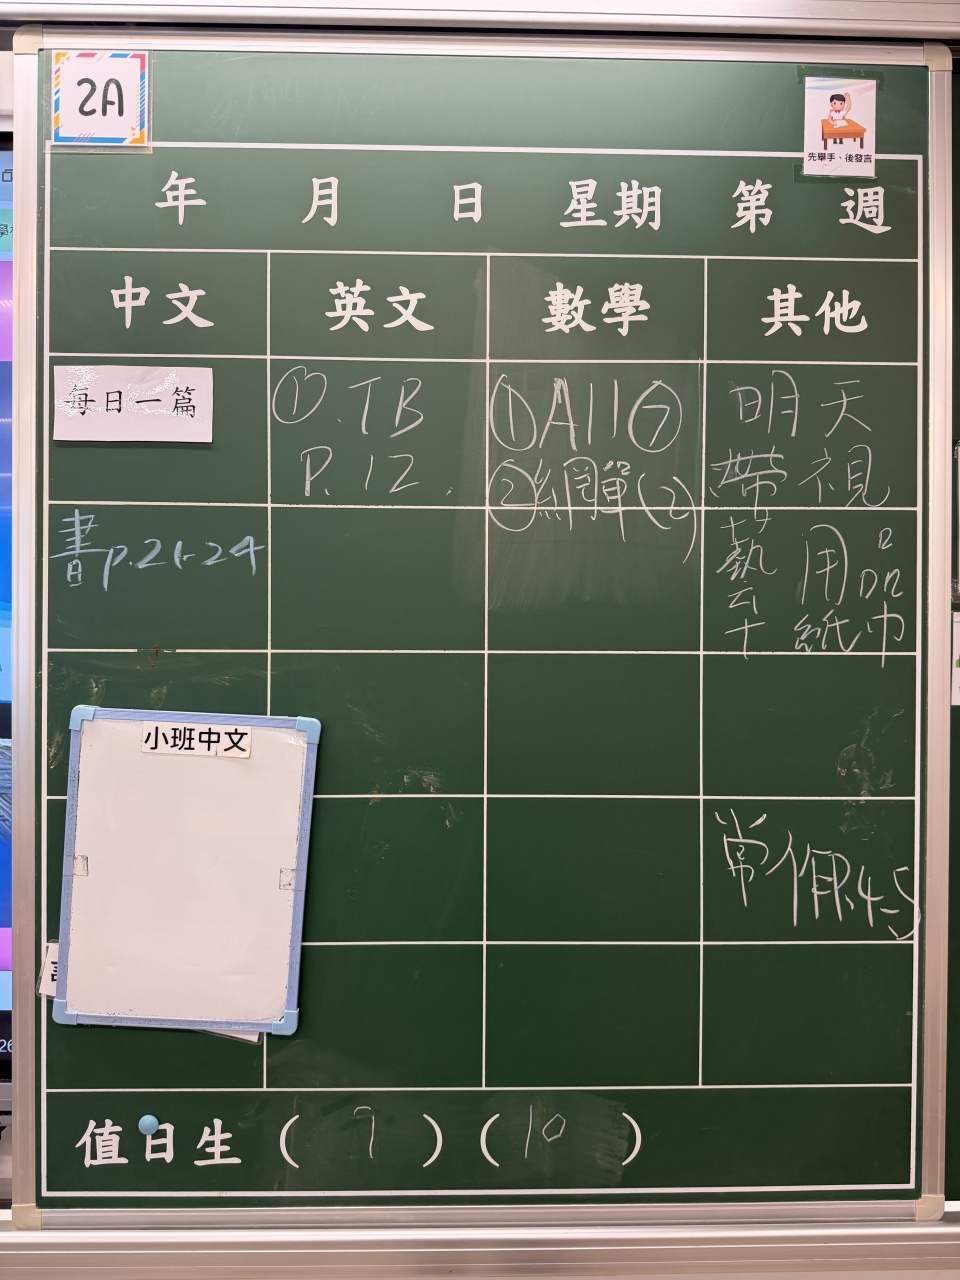 2A
先舉手、後發言
年 月 日 星期 第 週
中文 英文 數學 其他
每日一篇
書p.21-24
小班中文
① .TB
P.12.
①A11⑦
②網單(2)
明天
帶視
藝用品
紙巾
常作P.4-5
值日生 ( 9 ) ( 10 )